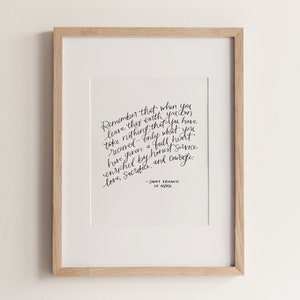 Remember that when you
leave this earth, you can
take nothing that you have
received - only what you
have given: a full heart
enriched by honest service
love, sacrifice and courage.
- SAINT FRANCIS
OF ASSISI